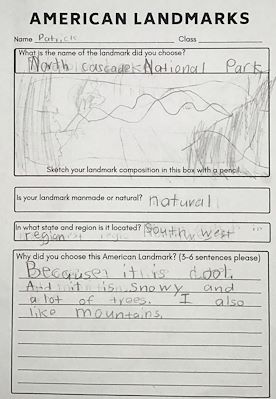 AMERICAN LANDMARKS
Name Patrick Class
What is the name of the landmark did you choose?
North Cascades National Park
Sketch your landmark composition in this box with a pencil.
Is your landmark manmade or natural? natural
In what state and region is it located? South west
region
Why did you choose this American Landmark? (3-6 sentences please)
Because it is cool.
And it is snowy and
a lot of trees. I also
like mountains.